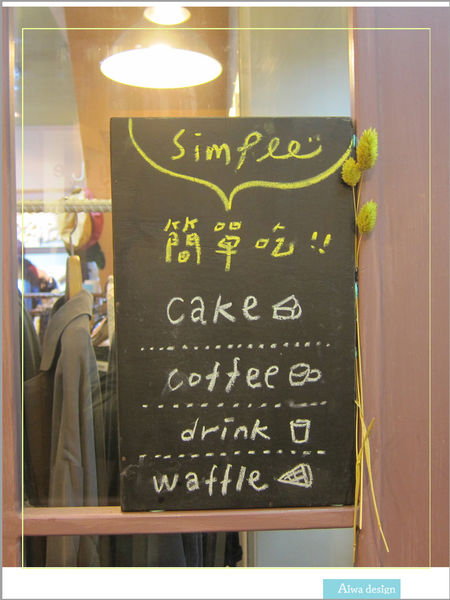 Simple
簡單吃!!
cake
coffee
drink
waffle
Aiwa design